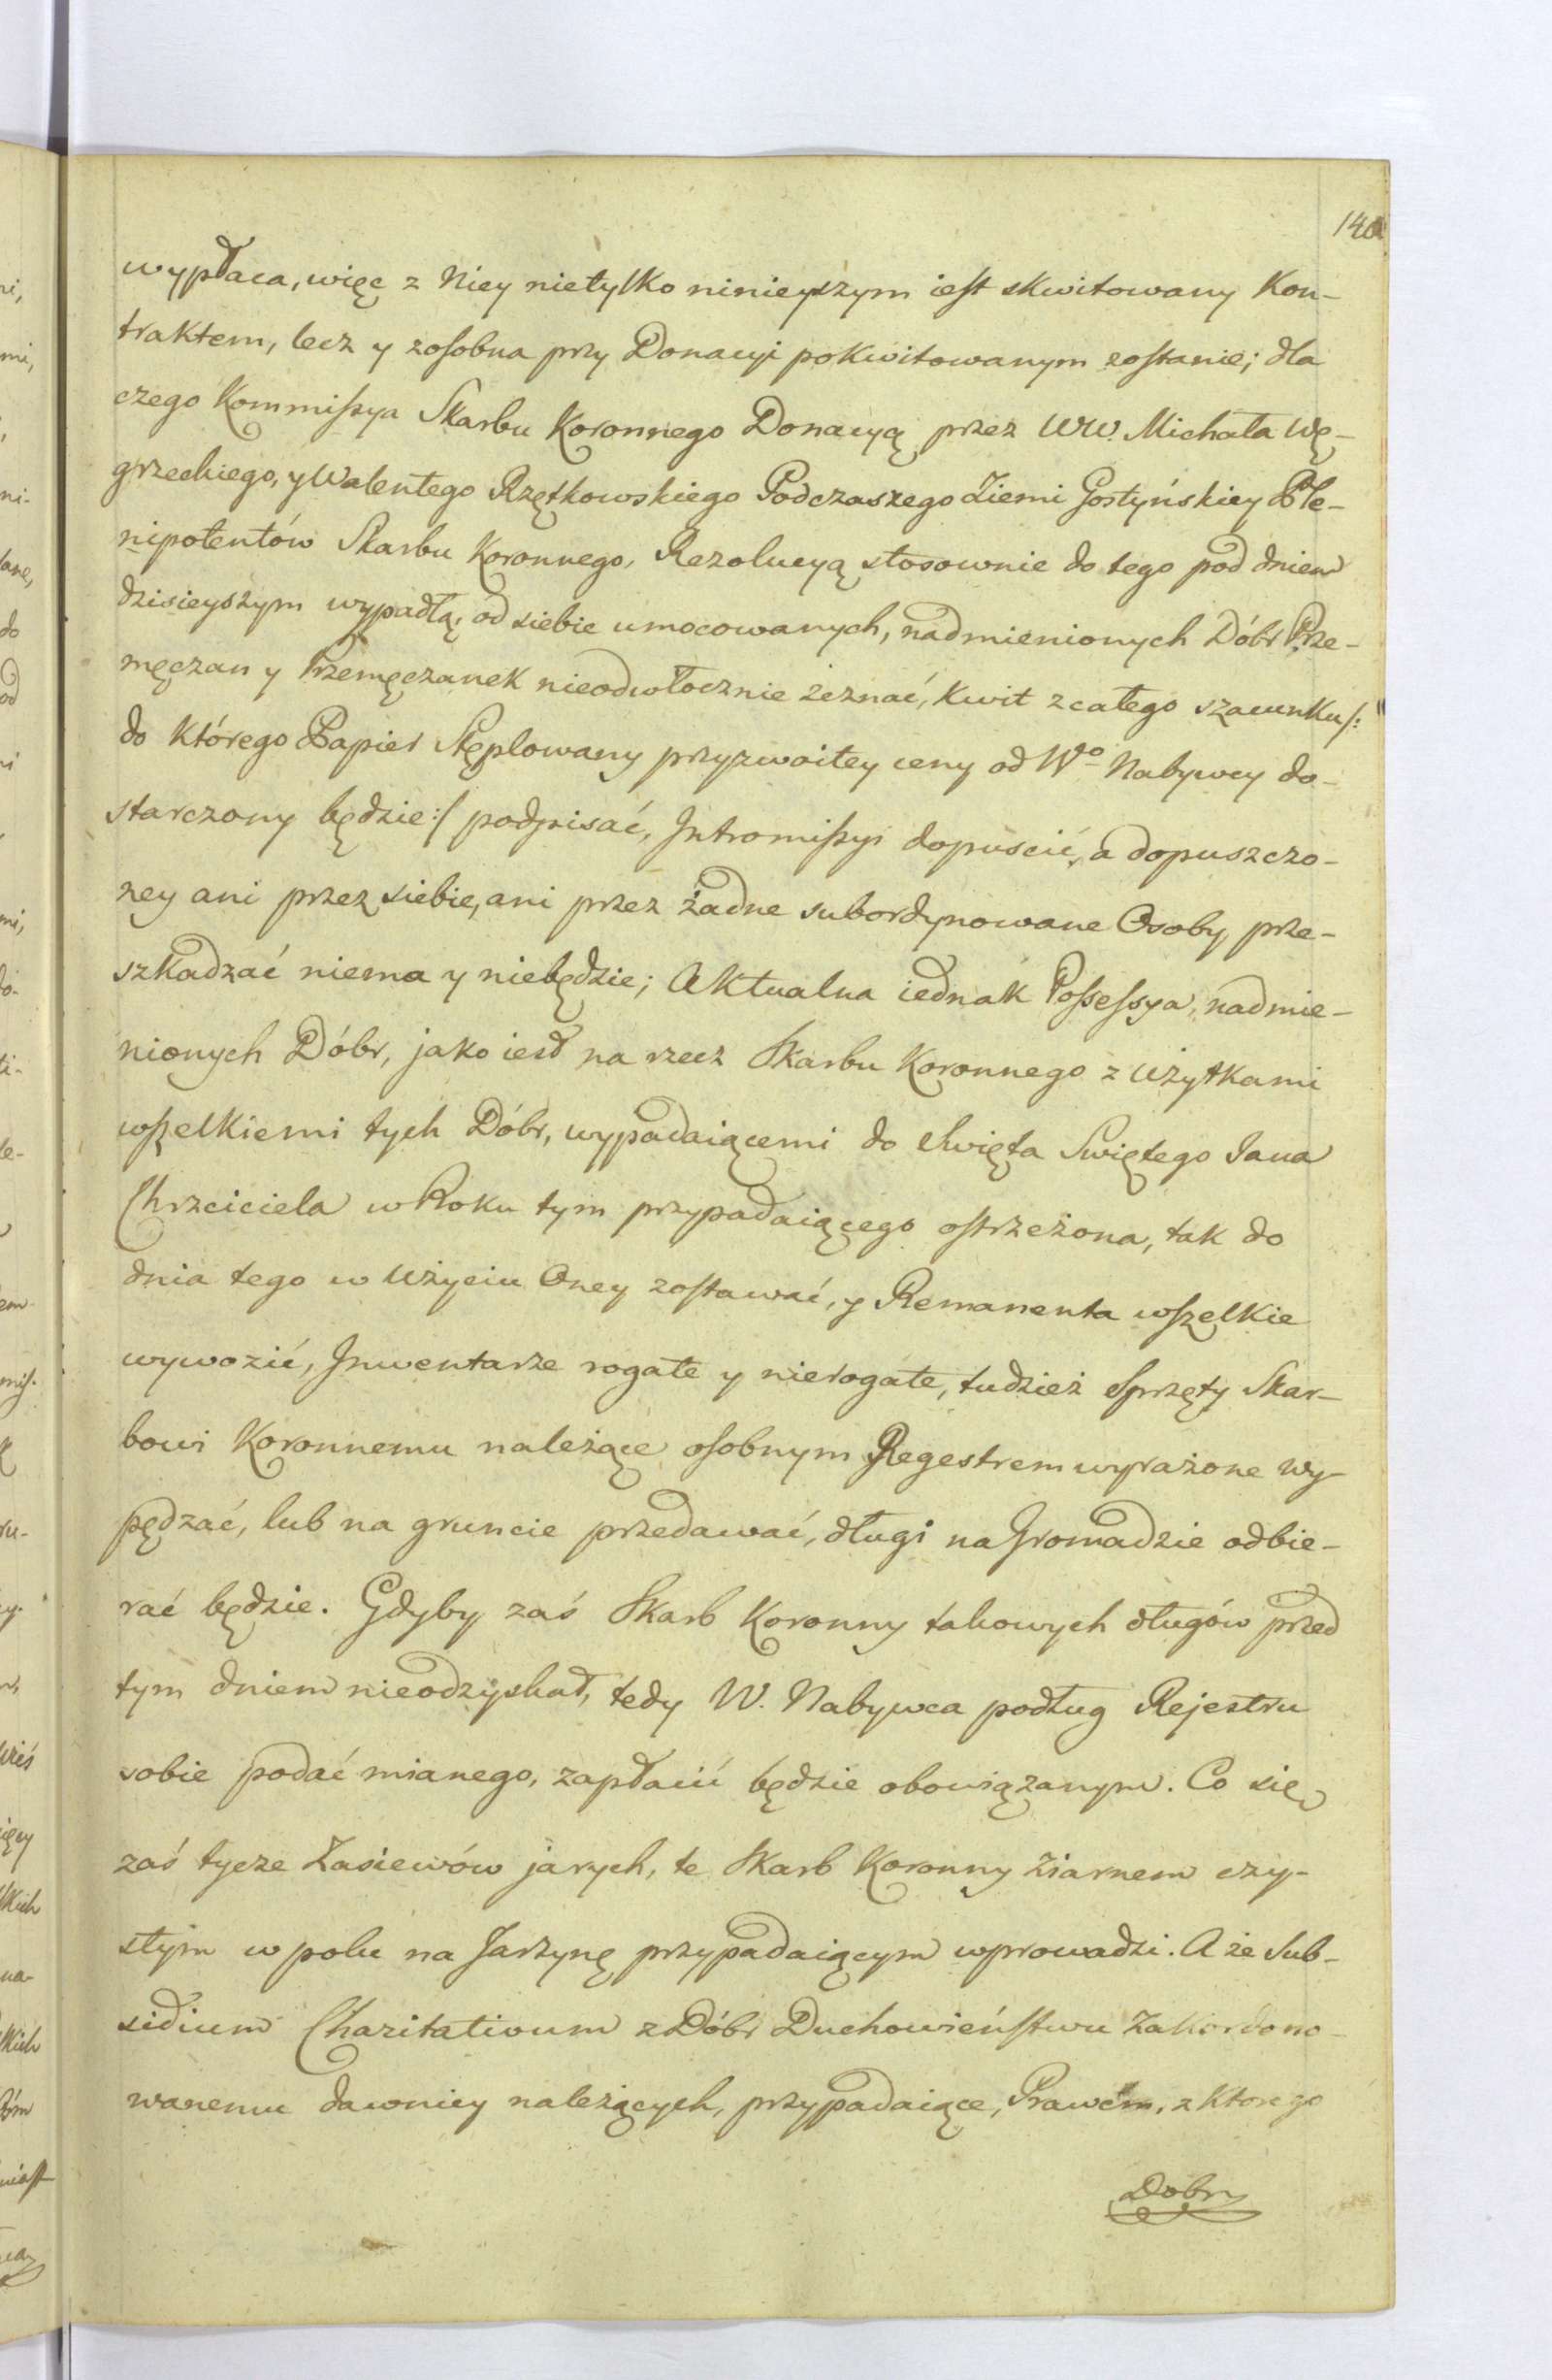 140
wypłaca, więc z Niey nietylko ninieyszym iest skwitowany Kon-
traktem, lecz y zosobna przy Donacyi pokwitowanym zostanie; dla
czego Kommissya Skarbu Koronnego Donacyą przez WW. Michała Wę-
grzeckiego, y Walentego Rzętkowskiego Podczaszego Ziemi Gostyńskiey Ple-
nipotentów Skarbu Koronnego, Rezolucyą stosownie do tego pod dniem
dzisieyszym wypadłą, od siebie umocowanych, nadmienionych Dóbr Prze-
męczan y Przemęczanek nieodwłocznie zeznać, Kwit z całego szacunku /:
do którego Papier Stęplowany przyzwoitey ceny od Wo Nabywcy do-
starczony będzie :/ podpisać, Intromissyi dopuścić, a dopuszczo-
ney ani przez siebie, ani przez żadne subordynowane Osoby, prze-
szkadzać niema y niebędzie; Aktualna iednak Possessya, nadmie-
nionych Dóbr, jako iest na rzecz Skarbu Koronnego z użytkami
wszelkiemi tych Dóbr, wypadaiącemi do Święta Swiętego Jana
Chrzciciela w Roku tym przypadaiącego ostrzeżona, tak do
dnia tego w Użyciu Oney zostawać, y Remanenta wszelkie
wywozić, Inwentarze rogate y nierogate, tudzież Sprzęty Skar-
bowi Koronnemu należące osobnym Regestrem wyrażone wy-
pędzać, lub na gruncie przedawać, długi na Gromadzie odbie-
rać będzie. Gdyby zaś Skarb Koronny takowych długów przed
tym dniem nieodzyskał, tedy W. Nabywca podług Rejestru
sobie podać mianego, zapłacić będzie obowiązanym. Co się
zaś tycze Zasiewów jarych, te Skarb Koronny Ziarnem czy-
stym w polu na Jarzynę przypadaiącym wprowadzi. A że Sub-
sidium Charitativum z Dóbr Duchowieństwu Zakordono-
wanemu dawniey należących, przypadaiące, Prawem, z ktorego
Dobry